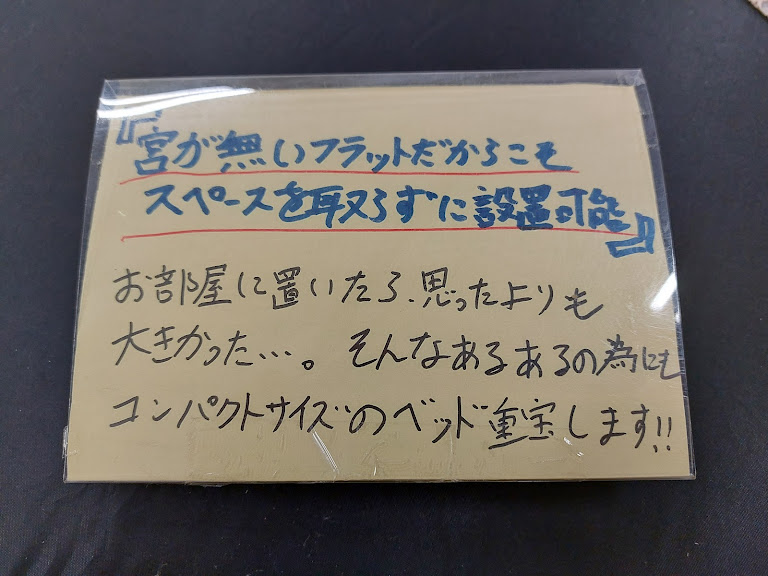 『宮が無いフラットだからこそ
スペースを取らずに設置可能』
お部屋に置いたら、思ったよりも
大きかった…。そんなあるあるの為にも
コンパクトサイズのベッド重宝します!!